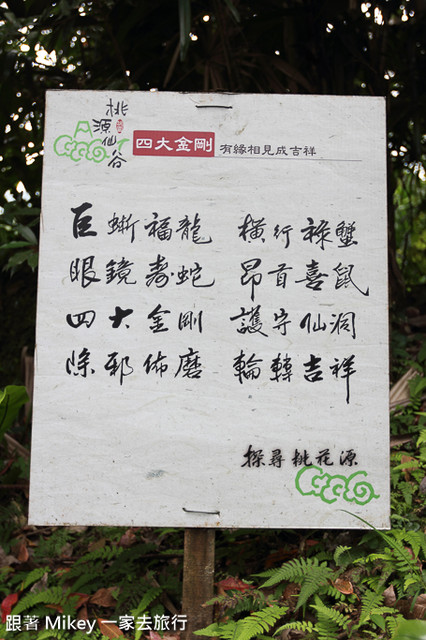 桃源仙谷
四大金剛 有緣相見成吉祥
巨蜥福龍 橫行祿蟹
眼鏡壽蛇 昂首喜鼠
四大金剛 護守仙洞
除邪佈磨 輪轉吉祥
探尋桃花源
跟著 Mikey 一家去旅行